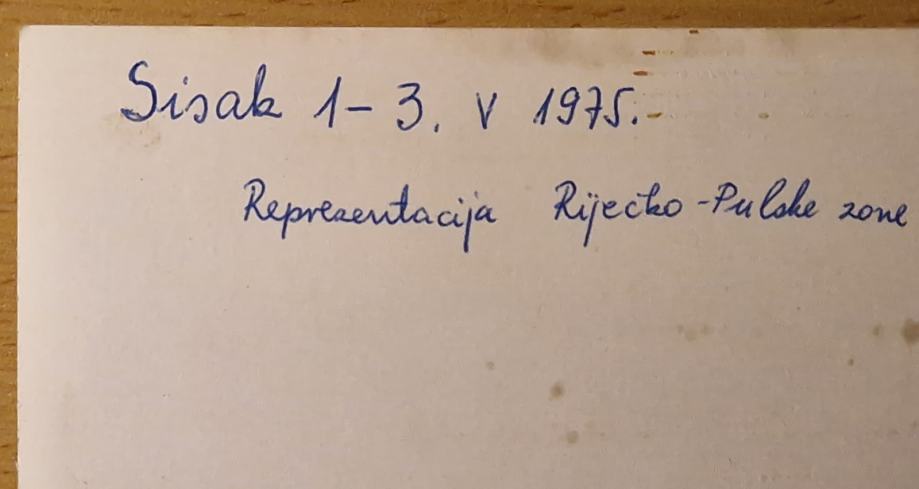 Sisak 1-3. V 1975.-
Reprezentacija Riječko-Pulske zone